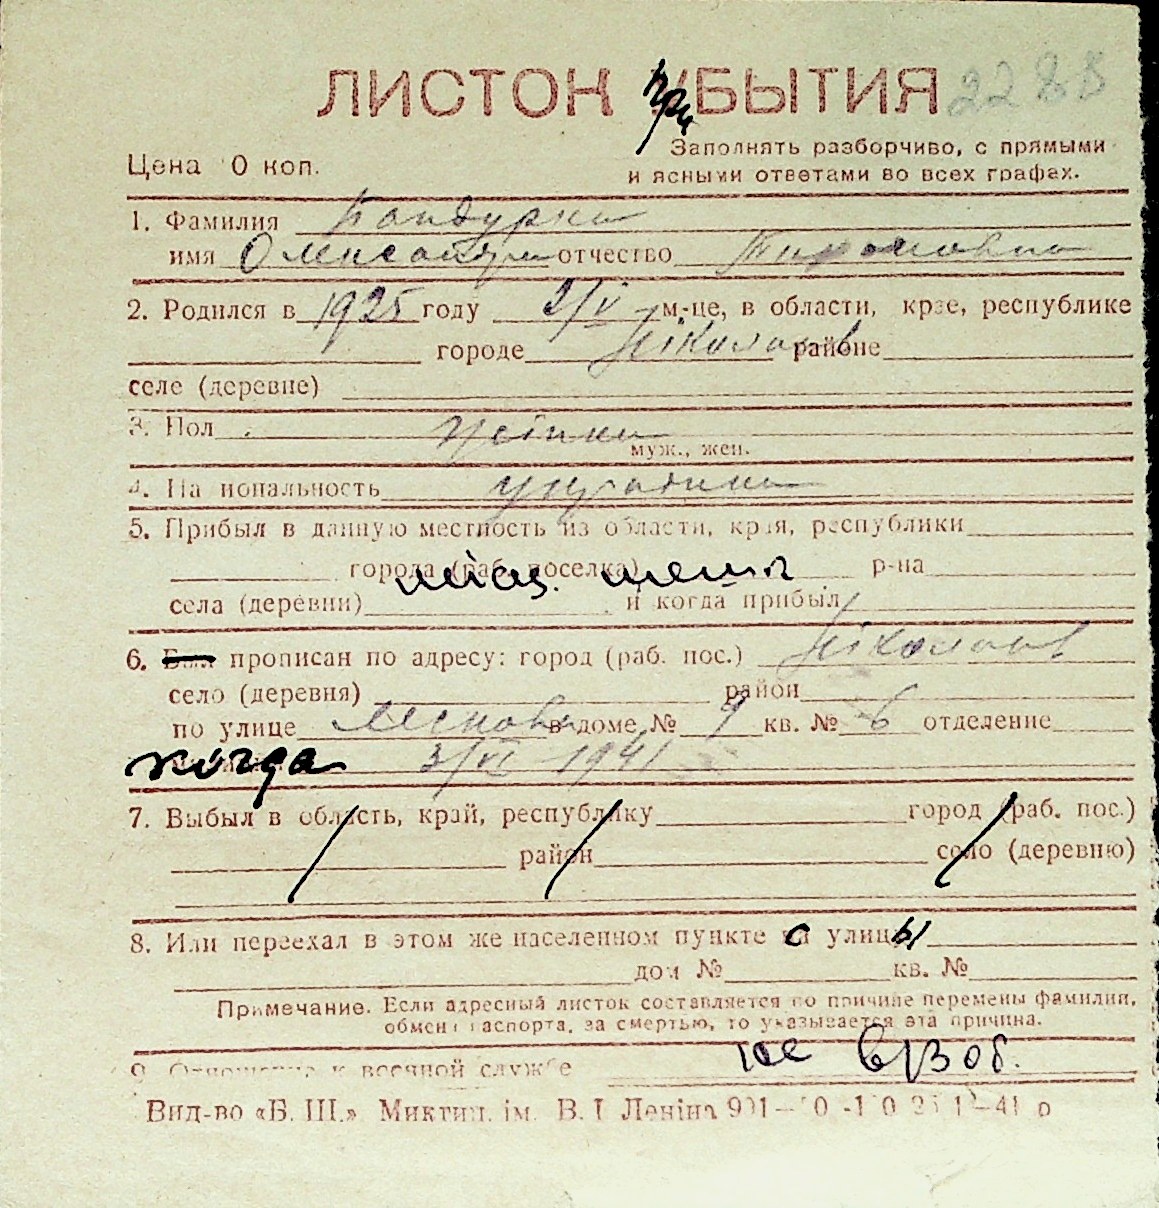 ЛИСТОК при УБЫТИЯ 2288
Заполнять разборчиво, с прямыми
Цена 10 коп. и ясными ответами во всех графах.
1. Фамилия
имя Олександра отчество
2. Родился в 1925 году 2/V м-це, в области, крае, республике
городе Ніколаєв районе
селе (деревне)
3. Пол жінка
муж., жен.
4. Национальность українка
5. Прибыл в данную местность из области, края, республики
города (раб. поселка) р-на
села (деревни) и когда прибыл
6. Был прописан по адресу: город (раб. пос.) Ніколаєв
село (деревня) район
по улице в доме № 9 кв. № 6 отделение
когда 3/VI 1941
7. Выбыл в область, край, республику город (раб. пос.)
район село (деревню)
8. Или переехал в этом же населенном пункте с улицы
дом № кв. №
Примечание. Если адресный листок составляется по причине перемены фамилии,
обмена паспорта, за смертью, то указывается эта причина.
9. Отношение к военной службе не в/зоб.
Вид-во «Б. Ш.». Миктип. ім. В. І Леніна